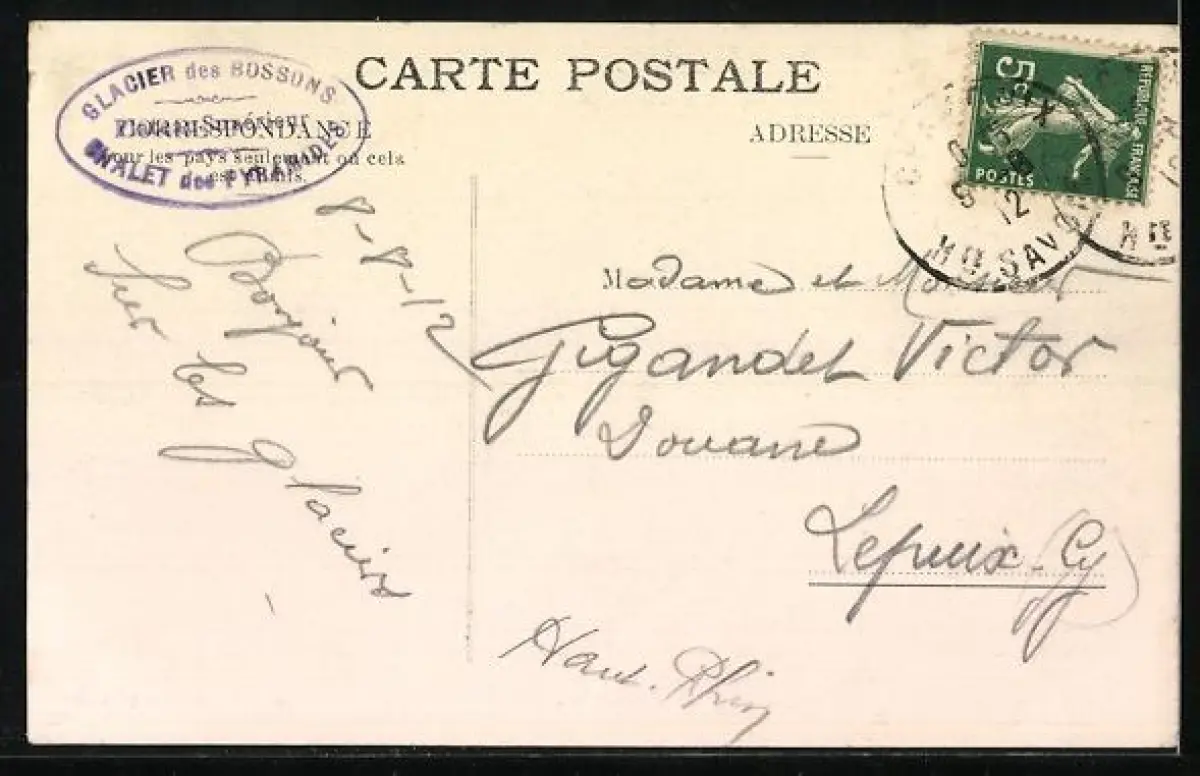 CARTE POSTALE
GLACIER des BOSSONS
CHALET des PYRAMIDES
CORRESPONDANCE
pour les pays seulement où cela
est admis.
ADRESSE
5c
RÉPUBLIQUE FRANÇAISE
POSTES
12
HTE SAVOIE
8-8-12
Bonjour
sur les glaciers
Madame et Monsieur
Gigandet Victor
Douane
Lepuix-Gy
Haut-Rhin